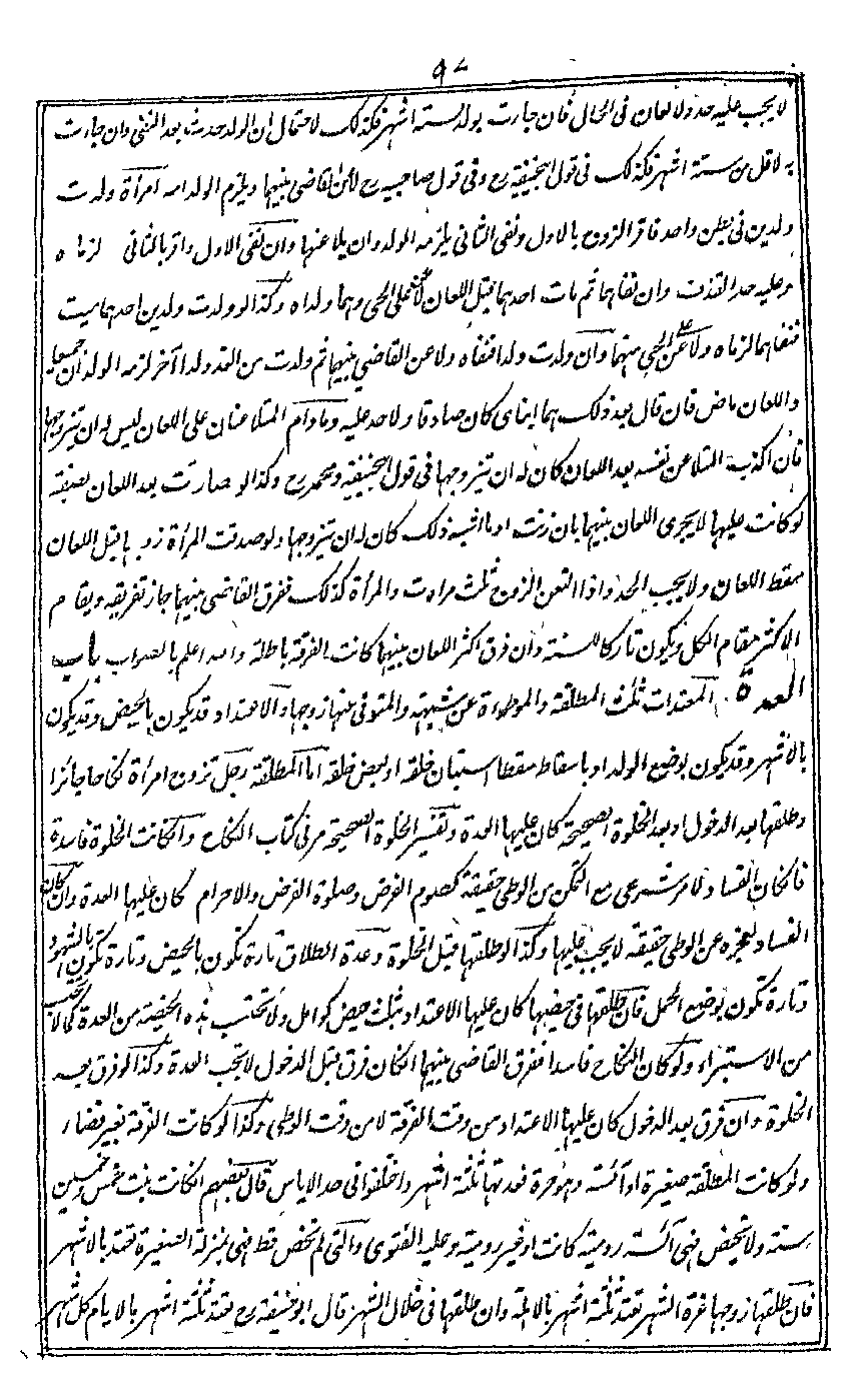 ٩٧
لا يجب عليه حد ولا لعان فى الحال فان جاءت بولد لستة اشهر فكذلك لاحتمال ان الولد حدث بعد النفى وان جاءت
به لاقل من ستة اشهر فكذلك فى قول ابيحنيفة رح وفى قول صاحبيه رح لاعن القاضى بينهما ويلزم الولد امه امرأة ولدت
ولدين فى بطن واحد فاقر الزوج بالاول ونفى الثانى يلزمه الولدان يلاعنها وان نفى الاول واقر بالثانى لزماه
وعليه حد القذف وان نفاهما ثم مات احدهما قبل اللعان لاعن على الحى وهما ولداه وكذا لو ولدت ولدين احدهما ميت
فنفاهما لزماه ولاعن على الحى منهما وان ولدت ولدا فنفاه ولاعن القاضى بينهما ثم ولدت من الغد ولدا آخر لزمه الولدان جميعا
واللعان ماض فان قال بعد ذلك هما ابناى كان صادقا ولا حد عليه وما دام المتلاعنان على اللعان ليس له ان يتزوجها
فان اكذب المتلاعن نفسه بعد اللعان كان له ان يتزوجها فى قول ابيحنيفة ومحمد رح وكذا لو صارت بعد اللعان بصفة
لو كانت عليها لا يجرى اللعان بينهما بان زنت او ما اشبه ذلك كان له ان يتزوجها ولو صدقت المرأة زوجها قبل اللعان
سقط اللعان ولا يجب الحد واذا التعن الزوج ثلث مرات والمرأة كذلك ففرق القاضى بينهما جاز تفريقه ويقام
الاكثر مقام الكل ويكون تاركا للسنة وان فرق اكثر اللعان بينهما كانت الفرقة باطلة والله اعلم بالصواب باب
العدة المعتدات ثلث المطلقة والموطوأة عن شبهة والمتوفى عنها زوجها والاعتداد قد يكون بالحيض وقد يكون
بالاشهر وقد يكون بوضع الولد او باسقاط سقط استبان خلقه او بعض خلقه اما المطلقة رجل تزوج امرأة نكاحا جائزا
وطلقها بعد الدخول او بعد الخلوة الصحيحة كان عليها العدة وتفسير الخلوة الصحيحة مر فى كتاب النكاح وان كانت الخلوة فاسدة
فان كان الفساد لامر شرعى مع التمكن من الوطى حقيقة كصوم الفرض وصلوة الفرض والاحرام كان عليها العدة وان كان
الفساد لعجزه عن الوطى حقيقة لا يجب عليها وكذا لو طلقها قبل الخلوة وعدة الطلاق تارة تكون بالحيض وتارة تكون بالشهور
وتارة تكون بوضع الحمل فان طلقها فى حيضها كان عليها الاعتداد بثلث حيض كوامل ولا تحتسب هذه الحيضة من العدة كما لا تحتسب
من الاستبراء ولو كان النكاح فاسدا ففرق القاضى بينهما ان كان فرق قبل الدخول لا يجب العدة وكذا لو فرق بعد
الخلوة وان فرق بعد الدخول كان عليها الاعتداد من وقت الفرقة لا من وقت الوطى وكذا لو كانت الفرقة بغير قضاء
ولو كانت المطلقة صغيرة او آئسة وهى حرة فعدتها ثلثة اشهر واختلفوا فى حد الاياس قال بعضهم ان كانت بنت خمس وخمسين
سنة ولا تحيض فهى آئسة رومية كانت او غير رومية وعليه الفتوى والتى لم تحض قط فهى بمنزلة الصغيرة تعتد بالاشهر
فان طلقها زوجها غرة الشهر تعتد ثلثة اشهر بالاهلة وان طلقها فى خلال الشهر قال ابو حنيفة رح تعتد ثلثة اشهر بالايام كل شهر